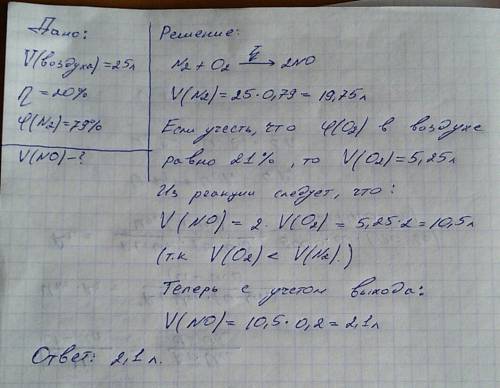 Дано:
V(воздуха)=25л
η=20%
φ(N₂)=79%
V(NO)-?
Решение:
t
N₂+O₂ → 2NO
V(N₂)=25·0,79=19,75л
Если учесть, что φ(O₂) в воздухе
равно 21%, то V(O₂)=5,25л
Из реакции следует, что:
V(NO)=2·V(O₂)=5,25·2=10,5л
(т.к V(O₂)<V(N₂).)
Теперь с учетом выхода:
V(NO)=10,5·0,2=2,1л
Ответ: 2,1л.